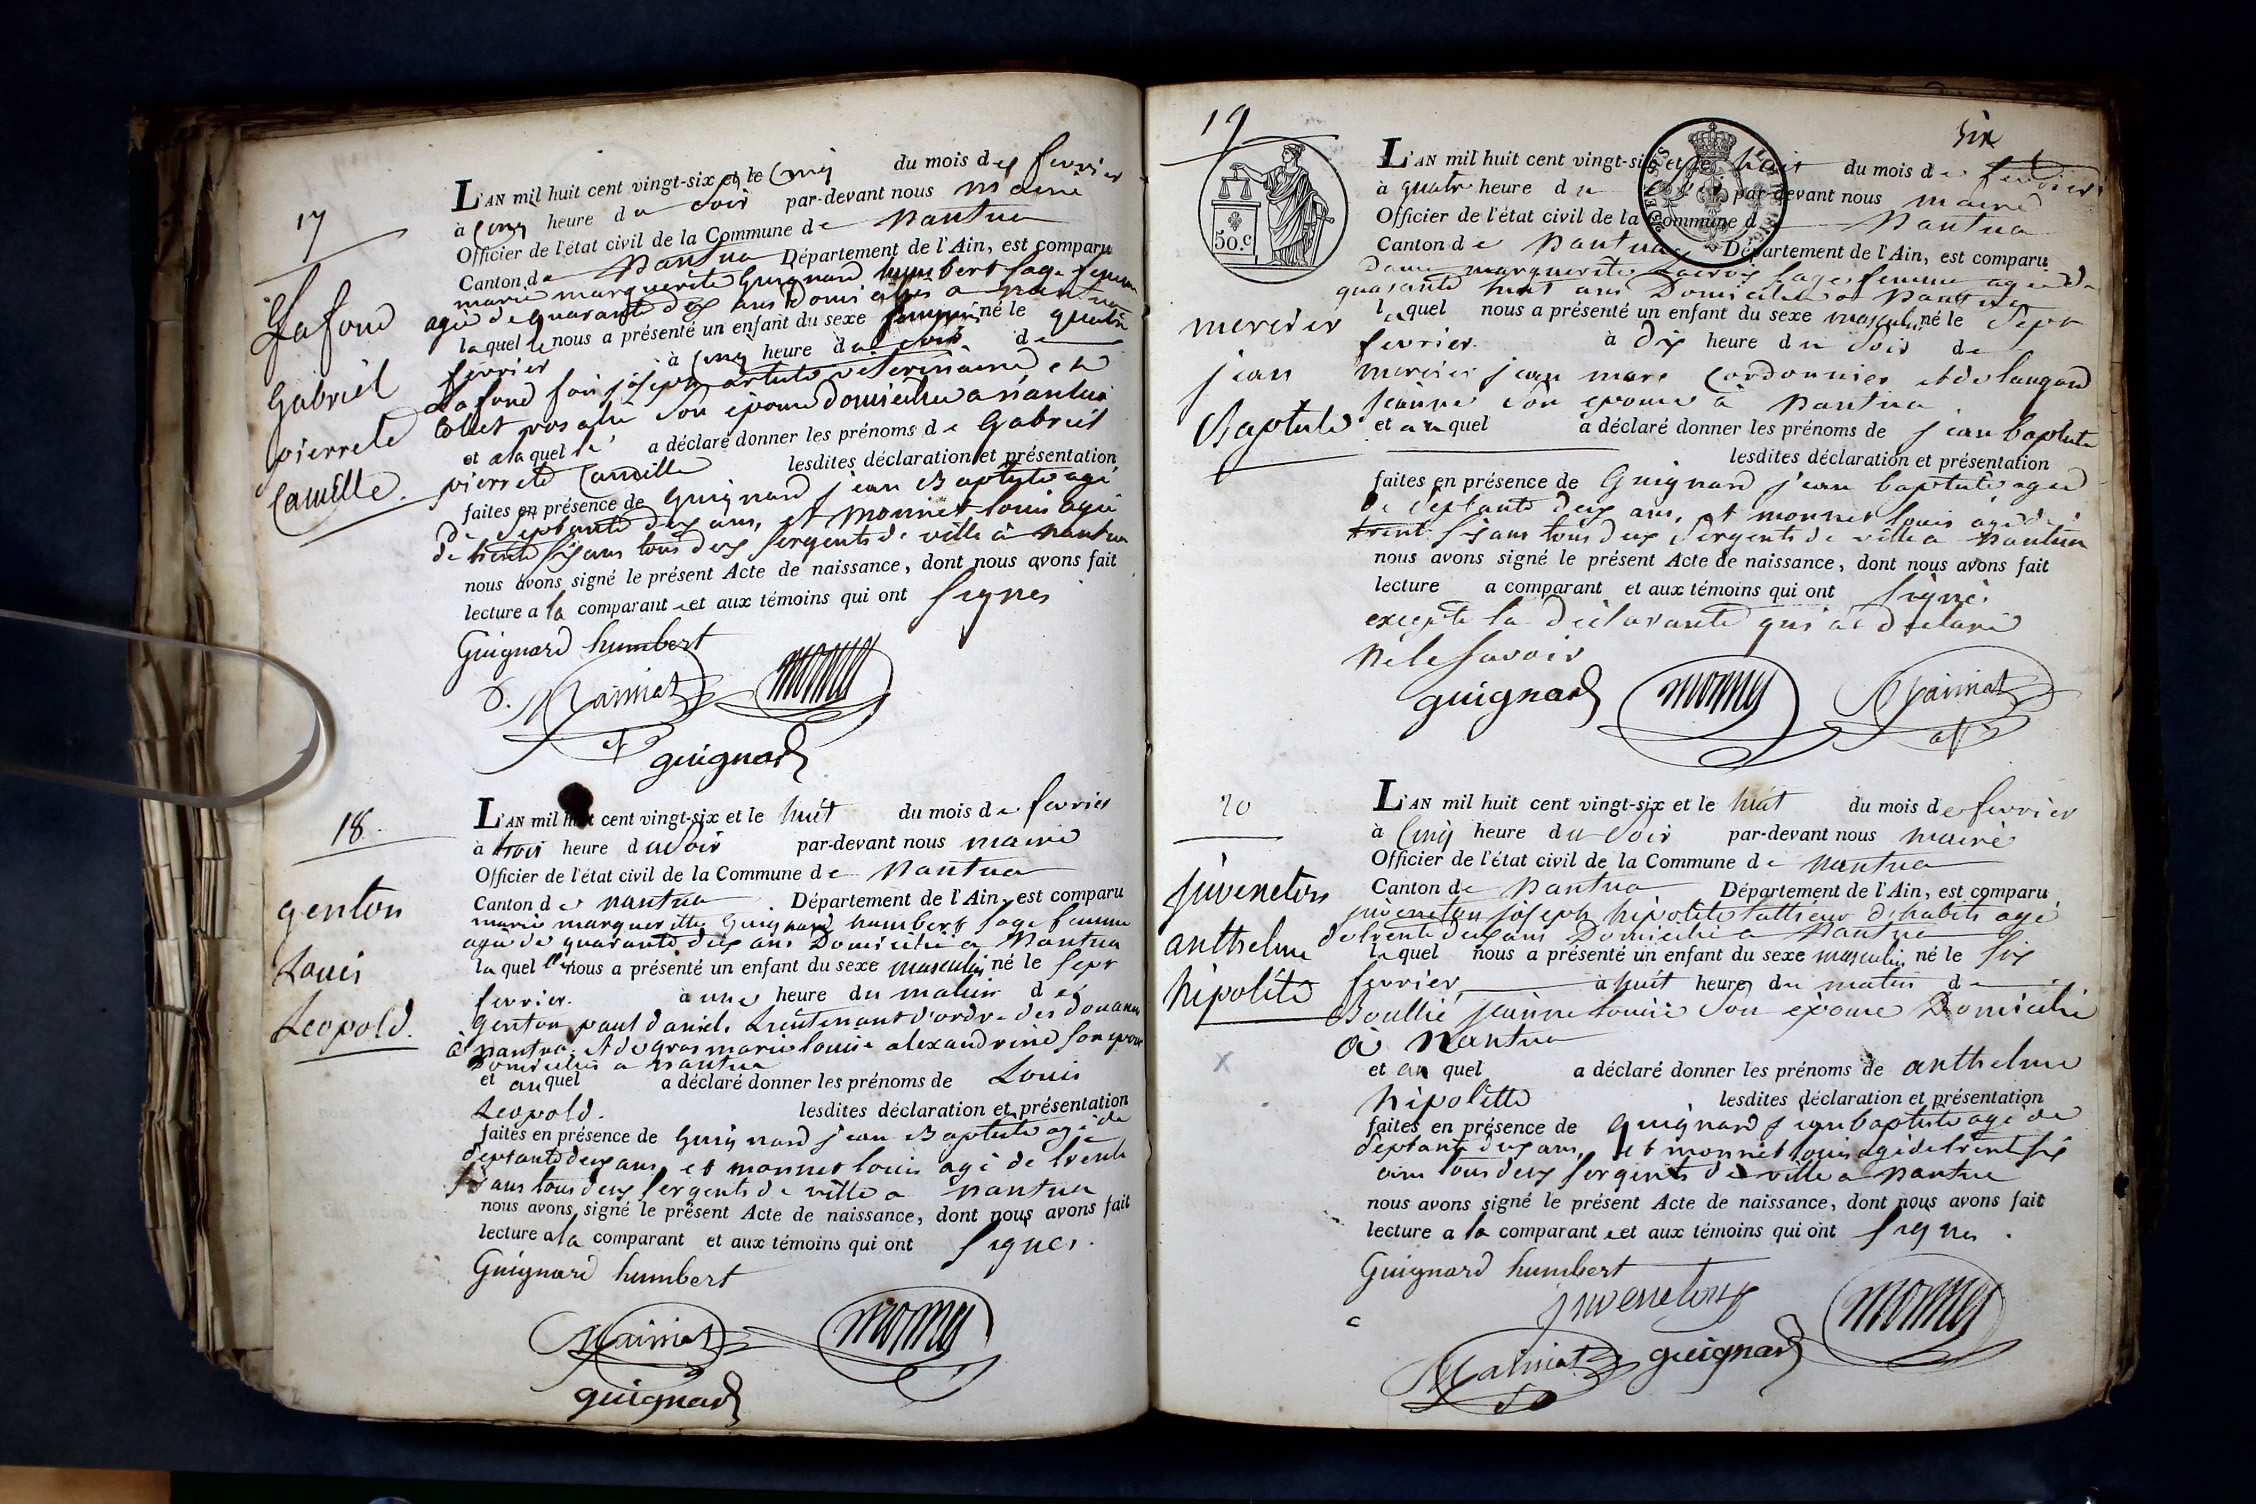 17
Lafond
Gabriel
pierrete
Camille.
L'AN mil huit cent vingt-six et le Cinq du mois de fevrier
à Cinq heure du Soir par-devant nous maire
Officier de l'état civil de la Commune de Nantua
Canton de Nantua Département de l'Ain, est comparu
marie marguerite Guignard humbert sage femme
agée de quarante deux ans Domiciliée a Nantua
laquelle nous a présenté un enfant du sexe feminin né le quatre
fevrier à Cinq heure du Soir de
Lafond joseph artiste veterinaire et de
Collet rosalie Son épouse Domiciliée a nantua
et alaquel le a déclaré donner les prénoms de Gabriel
pierrete Camille lesdites déclaration et présentation
faites en présence de Guignard jean Baptiste agé
De Septante deux ans, et Monnet louis agé
de trente Six ans tous deux Sergents de ville à nantua
nous avons signé le présent Acte de naissance, dont nous avons fait
lecture a la comparante et aux témoins qui ont Signés
Guignard humbert
guignard
18.
genton
Louis
Leopold.
L'AN mil huit cent vingt-six et le huit du mois de fevrier
à trois heure du Soir par-devant nous maire
Officier de l'état civil de la Commune de Nantua
Canton de nantua Département de l'Ain, est comparu
marie margueritte Guignard humbert sage femme
agée de quarante deux ans Domiciliée a Nantua
laquelle nous a présenté un enfant du sexe masculin né le Sept
fevrier. à une heure du matin de
genton paul daniel, Lieutenant d'ordre des douanes
à nantua, et de gras marie louise alexandrine son epouse
Domiciliés a nantua
et auquel a déclaré donner les prénoms de Louis
Leopold. lesdites déclaration et présentation
faites en présence de Guignard jean Baptiste agé de
Septante deux ans, et monnet louis agé de trente
Six ans tous deux Sergents de ville a nantua
nous avons signé le présent Acte de naissance, dont nous avons fait
lecture a la comparant et aux témoins qui ont Signés.
Guignard humbert
guignard
19
six
50.c
mercier
jean
Baptiste
L'AN mil huit cent vingt-six et le huit du mois de fevrier
à quatre heure du Soir par-devant nous maire
Officier de l'état civil de la Commune de Nantua
Canton de Nantua Département de l'Ain, est comparu
Dame marguerite Lacroix Sage femme agée de
quarante huit ans Domiciliée a Nantua
laquel nous a présenté un enfant du sexe masculin né le Sept
fevrier. à dix heure du Soir de
mercier jean marc Cordonnier et de laugand
jeanne Son epouse à Nantua
et auquel a déclaré donner les prénoms de jean baptiste
lesdites déclaration et présentation
faites en présence de Guignard jean baptiste agé
De Septante deux ans, et monnet louis agé de
trente Six ans tous deux Sergents de ville a Nantua
nous avons signé le présent Acte de naissance, dont nous avons fait
lecture a comparant et aux témoins qui ont Signé.
excepté la déclarante qui a déclaré
ne le Savoir
guignard
20
juveneton
anthelme
hipolite
X
L'AN mil huit cent vingt-six et le huit du mois de fevrier
à Cinq heure du Soir par-devant nous maire
Officier de l'état civil de la Commune de nantua
Canton de Nantua Département de l'Ain, est comparu
juveneton joseph hipolite tailleur d'habits agé
de trente deux ans Domicilié a Nantua
lequel nous a présenté un enfant du sexe masculin né le Six
fevrier à huit heure du matin de
Boullié jeanne louise Son épouse Domicilié
à Nantua
et au quel a déclaré donner les prénoms de anthelme
hipolitte lesdites déclaration et présentation
faites en présence de Guignard jean baptiste agé de
Septante deux ans, et monnet louis agé de trente Six
ans tous deux Sergents de ville a Nantua
nous avons signé le présent Acte de naissance, dont nous avons fait
lecture a la comparante et aux témoins qui ont Signés.
Guignard humbert
juveneton
guignard